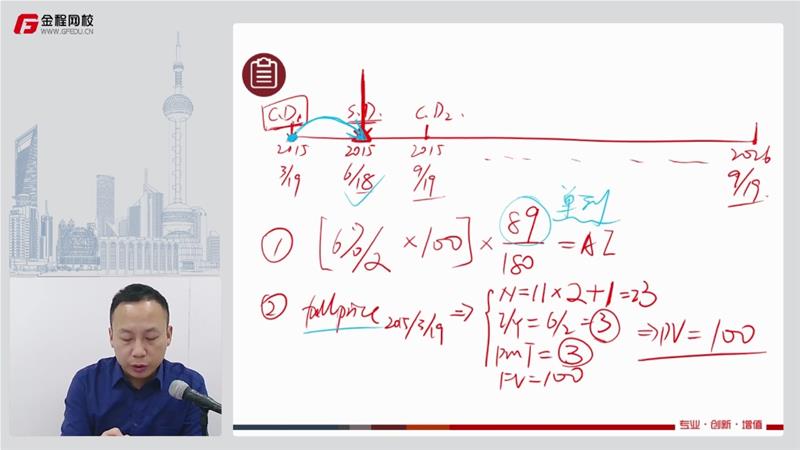 金程网校
WWW.GFEDU.CN
C.D1 S.D. C.D2.
2015 2015 2015 2026
3/19 6/18 9/19 9/19
单利
① [6%/2 ×100] × 89/180 = AI
② full price 2015/3/19 ⇒ { N=11×2+1=23
I/Y = 6/2 = 3
PMT = 3
FV=100
⇒ PV = 100
专业·创新·增值